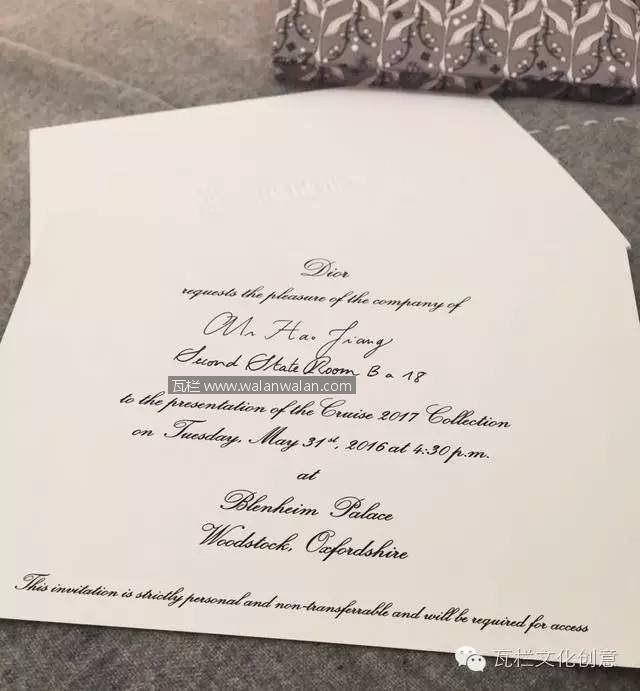 Dior
requests the pleasure of the company of
Mr Hao Jiang
Second State Room B a 18
瓦栏 www.walanwalan.com
to the presentation of the Cruise 2017 Collection
on Tuesday, May 31st, 2016 at 4:30 p.m.
at
Blenheim Palace
Woodstock, Oxfordshire
This invitation is strictly personal and non-transferrable and will be required for access
瓦栏文化创意